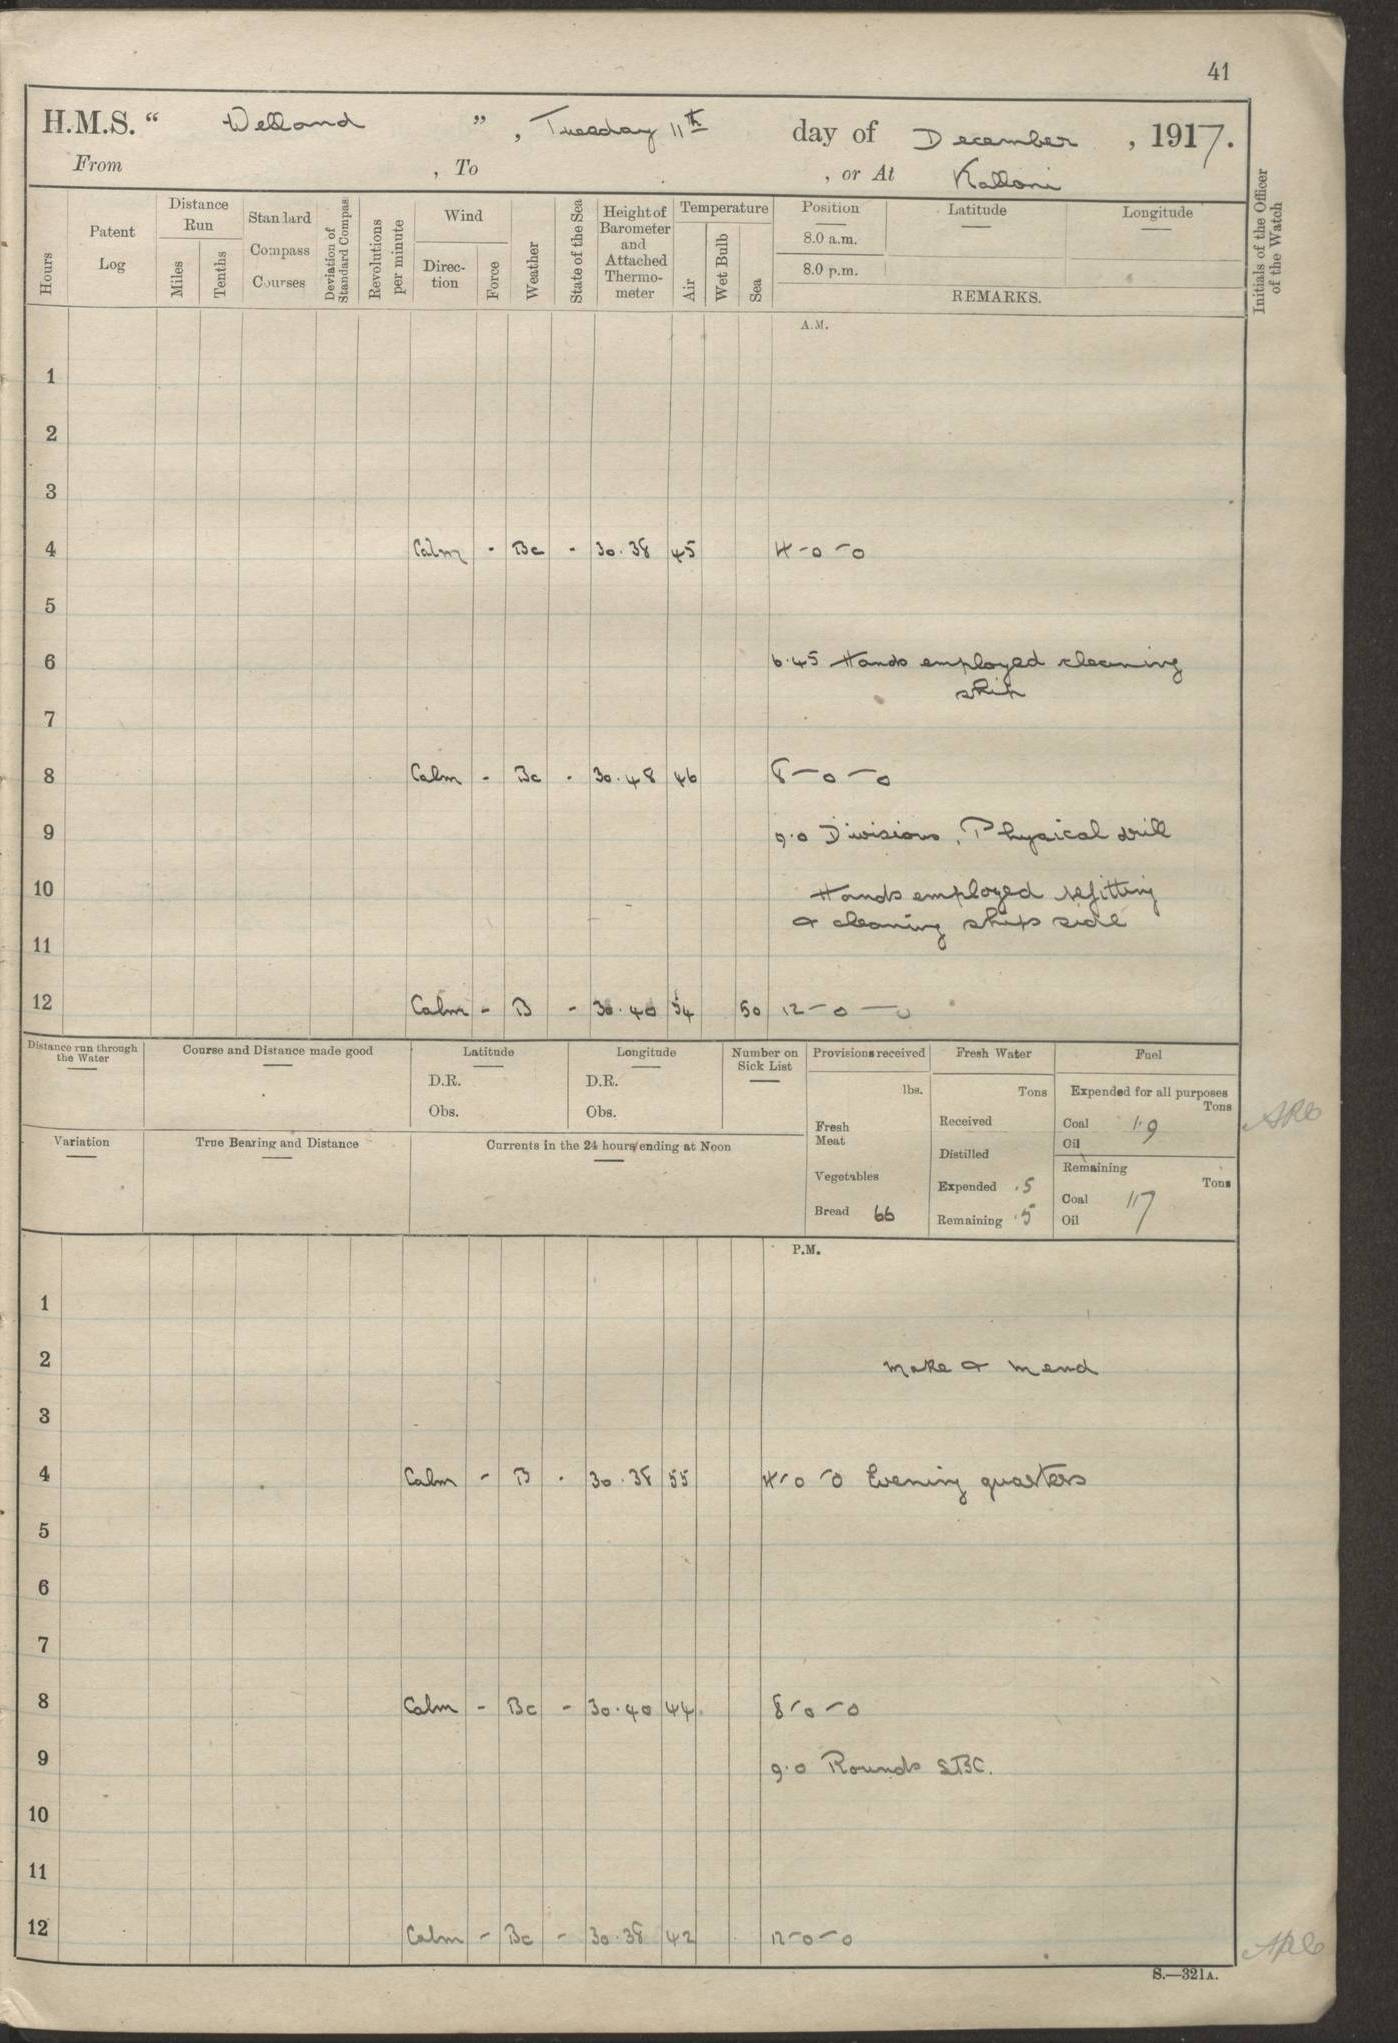 41
H.M.S. “ Welland ” , Tuesday 11th day of December , 1917.
From , To , or At Kalloni
Hours
Patent Log
Distance Run
Miles
Tenths
Standard Compass Courses
Deviation of Standard Compass
Revolutions per minute
Wind
Direc-tion
Force
Weather
State of the Sea
Height of Barometer and Attached Thermo-meter
Temperature
Air
Wet Bulb
Sea
Position Latitude Longitude
8.0 a.m.
8.0 p.m.
REMARKS.
Initials of the Officer of the Watch
A.M.
1
2
3
4 Calm - Bc - 30.38 45 4-0-0
5
6 6.45 Hands employed cleaning
ship
7
8 Calm - Bc - 30.48 46 8-0-0
9 9.0 Divisions, Physical drill
10 Hands employed refitting
& cleaning ships side
11
12 Calm - B - 30.40 54 50 12-0-0
Distance run through the Water
Course and Distance made good
Latitude
D.R.
Obs.
Longitude
D.R.
Obs.
Number on Sick List
Provisions received
lbs.
Fresh Meat
Vegetables
Bread 66
Fresh Water
Tons
Received
Distilled
Expended .5
Remaining .5
Fuel
Expended for all purposes
Tons
Coal 1.9
Oil
Remaining
Tons
Coal 117
Oil
Variation
True Bearing and Distance
Currents in the 24 hours ending at Noon
P.M.
1
2 Make & mend
3
4 Calm - B - 30.38 55 4-0-0 Evening quarters
5
6
7
8 Calm - Bc - 30.40 44 8-0-0
9 9.0 Rounds SBC.
10
11
12 Calm - Bc - 30.38 42 12-0-0
S.—321A.